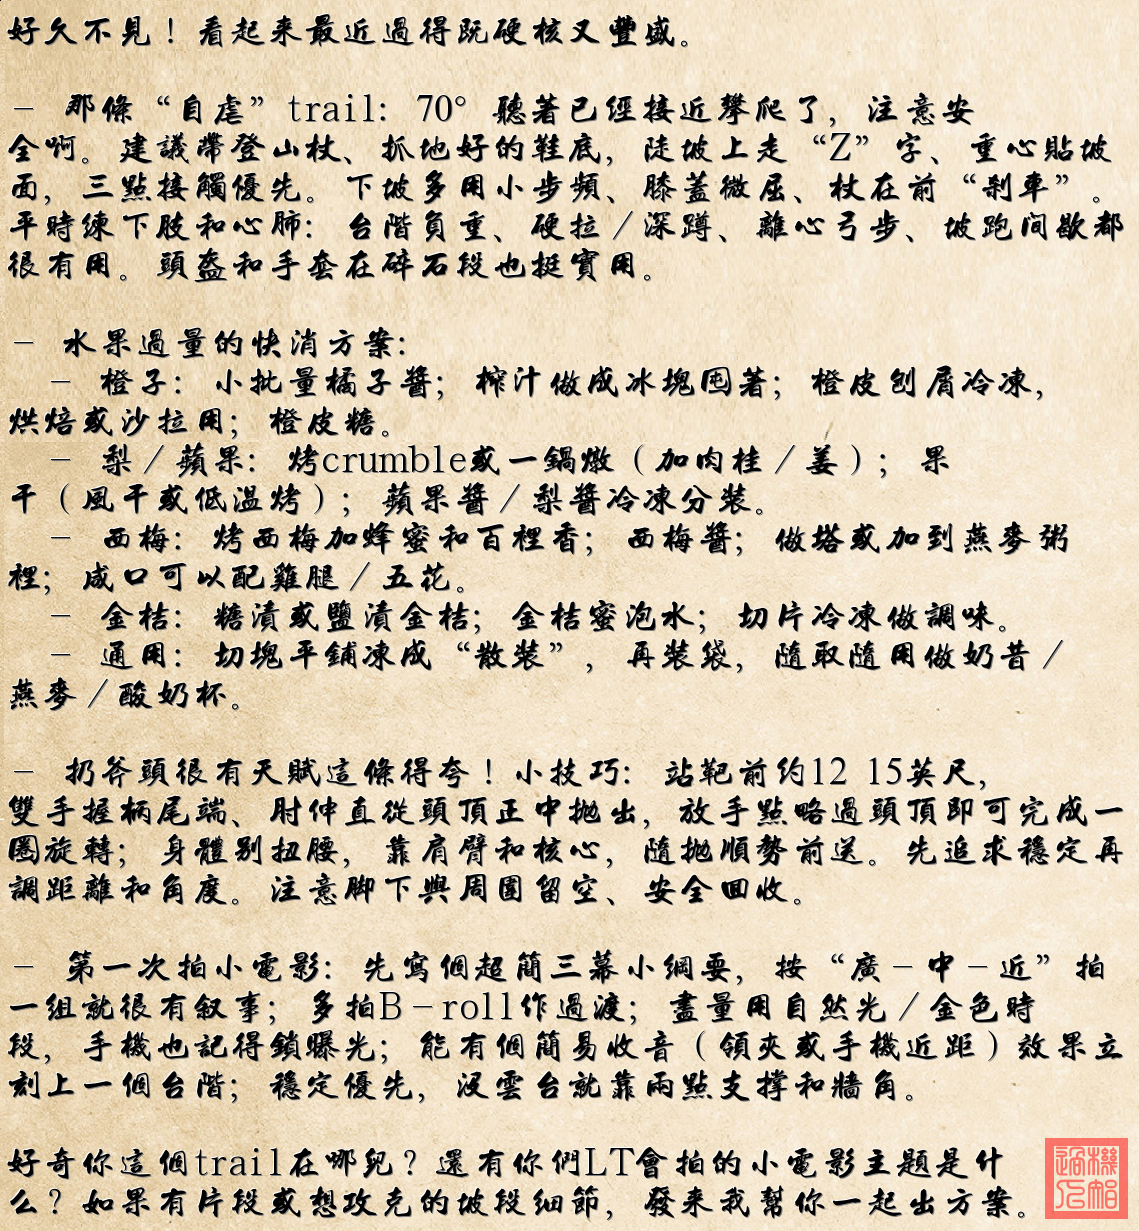 好久不見！看起來最近過得既硬核又豐盛。
- 那條“自虐”trail: 70°聽著已經接近攀爬了，注意安
全啊。建議帶登山杖、抓地好的鞋底，陡坡上走“Z”字、重心貼坡
面，三點接觸優先。下坡多用小步頻、膝蓋微屈、杖在前“剎車”。
平時練下肢和心肺：台階負重、硬拉/深蹲、離心弓步、坡跑间歇都
很有用。頭盔和手套在碎石段也挺實用。
- 水果過量的快消方案：
- 橙子：小批量橘子醬；榨汁做成冰塊囤著；橙皮刨屑冷凍，
烘焙或沙拉用；橙皮糖。
- 梨/蘋果：烤crumble或一鍋燉（加肉桂/姜）；果
干（風干或低溫烤）；蘋果醬/梨醬冷凍分裝。
- 西梅：烤西梅加蜂蜜和百裡香；西梅醬；做塔或加到燕麥粥
裡；咸口可以配雞腿/五花。
- 金桔：糖漬或鹽漬金桔；金桔蜜泡水；切片冷凍做調味。
- 通用：切塊平鋪凍成“散裝”，再裝袋，隨取隨用做奶昔/
燕麥/酸奶杯。
- 扔斧頭很有天賦這條得夸！小技巧：站靶前約12 15英尺，
雙手握柄尾端、肘伸直從頭頂正中拋出，放手點略過頭頂即可完成一
圈旋轉；身體別扭腰，靠肩臂和核心，隨拋順勢前送。先追求穩定再
調距離和角度。注意腳下與周圍留空、安全回收。
- 第一次拍小電影：先寫個超簡三幕小綱要，按“廣-中-近”拍
一組就很有敘事；多拍B-roll作過渡；盡量用自然光/金色時
段，手機也記得鎖曝光；能有個簡易收音（領夾或手機近距）效果立
刻上一個台階；穩定優先，沒雲台就靠兩點支撐和牆角。
好奇你這個trail在哪兒？還有你們LT會拍的小電影主題是什
么？如果有片段或想攻克的坡段細節，發來我幫你一起出方案。